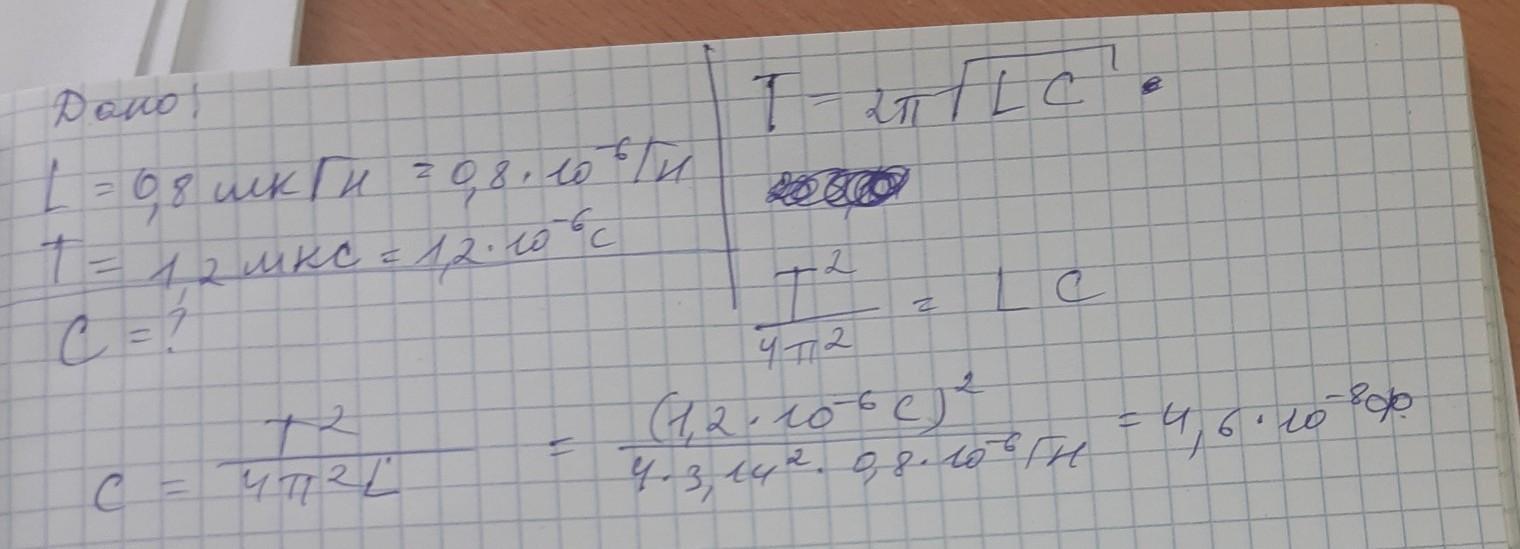 Дано!
L = 0,8 мкГн = 0,8 · 10⁻⁶ Гн
T = 1,2 мкс = 1,2 · 10⁻⁶ с
C = ?
T = 2π√LC
T²/4π² = LC
C = T²/4π²L = (1,2 · 10⁻⁶ с)²/4 · 3,14² · 0,8 · 10⁻⁶ Гн = 4,6 · 10⁻⁸ ф.